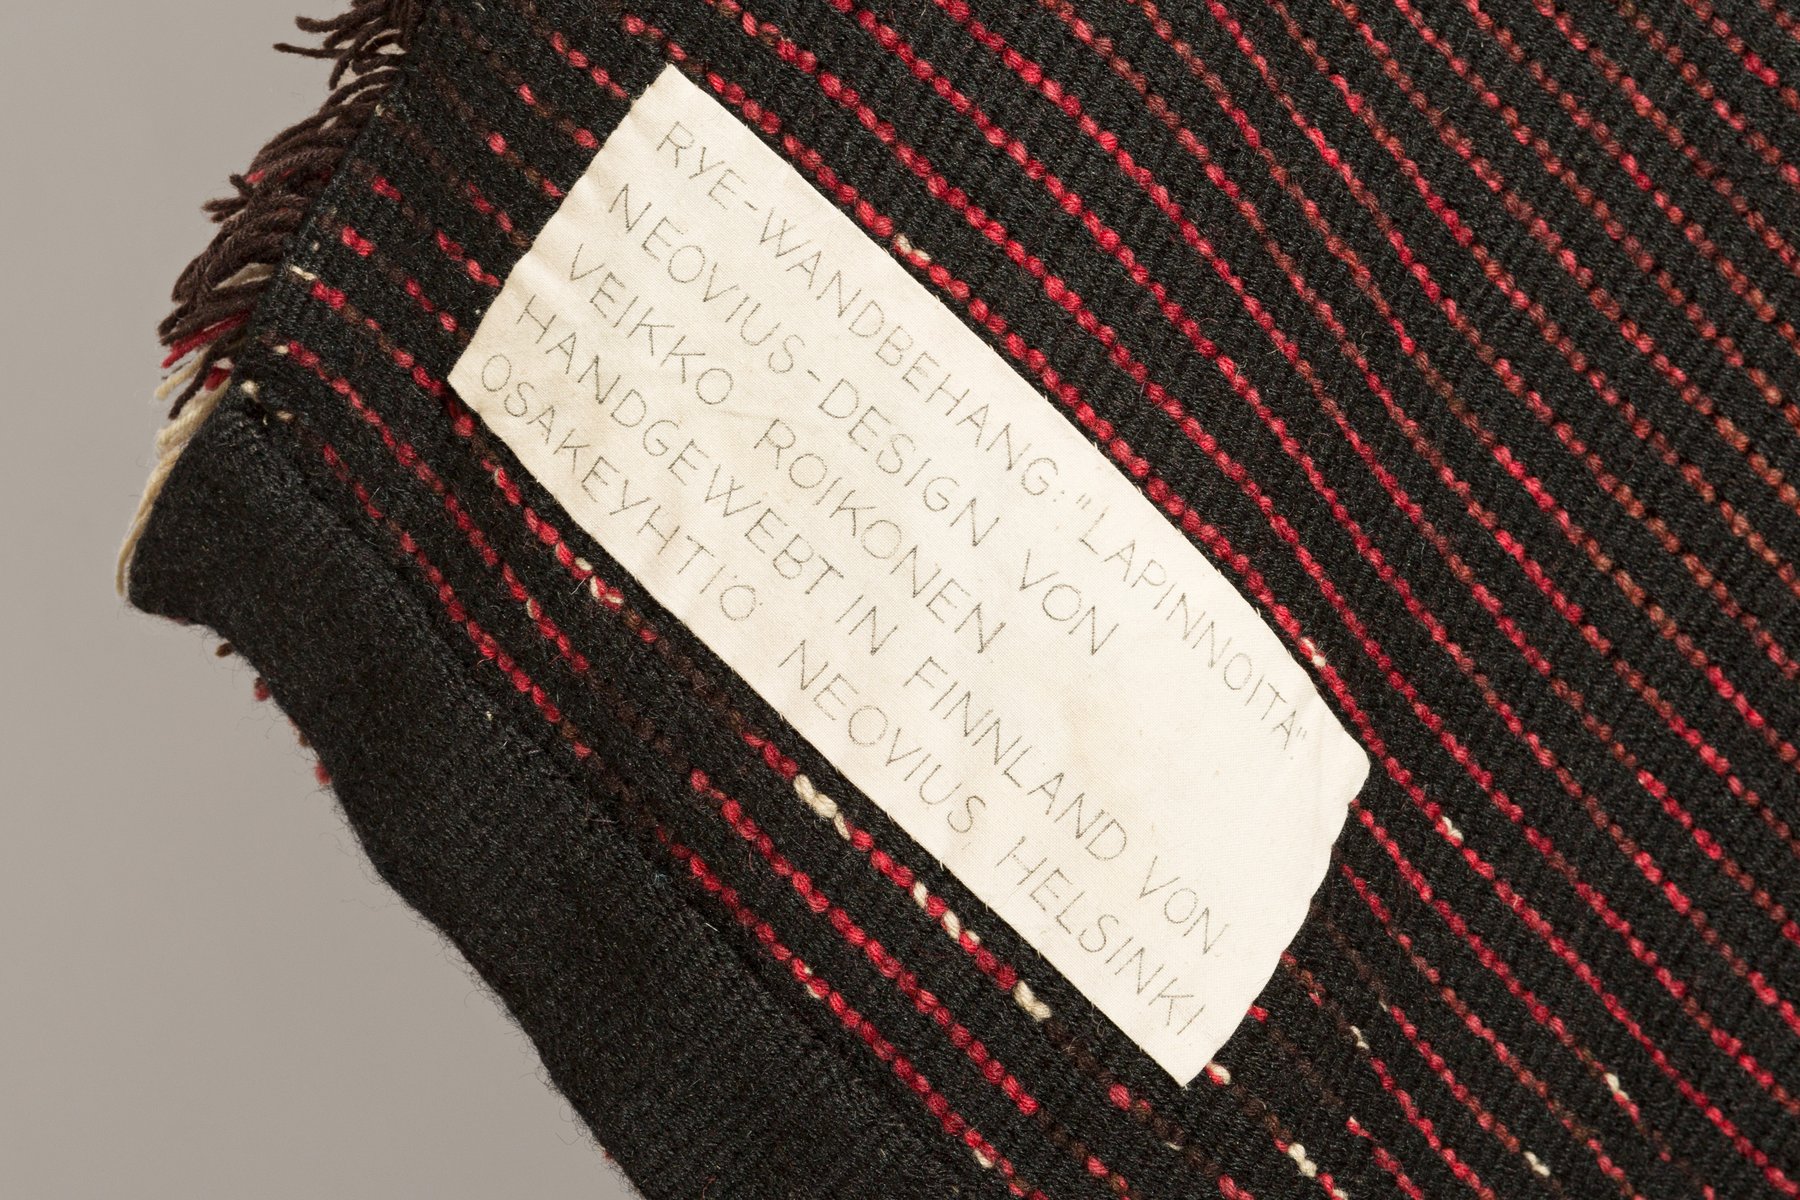 RYE-WANDBEHANG: "LAPINNOITA"
NEOVIUS-DESIGN VON
VEIKKO ROIKONEN
HANDGEWEBT IN FINNLAND VON
OSAKEYHTIÖ NEOVIUS, HELSINKI